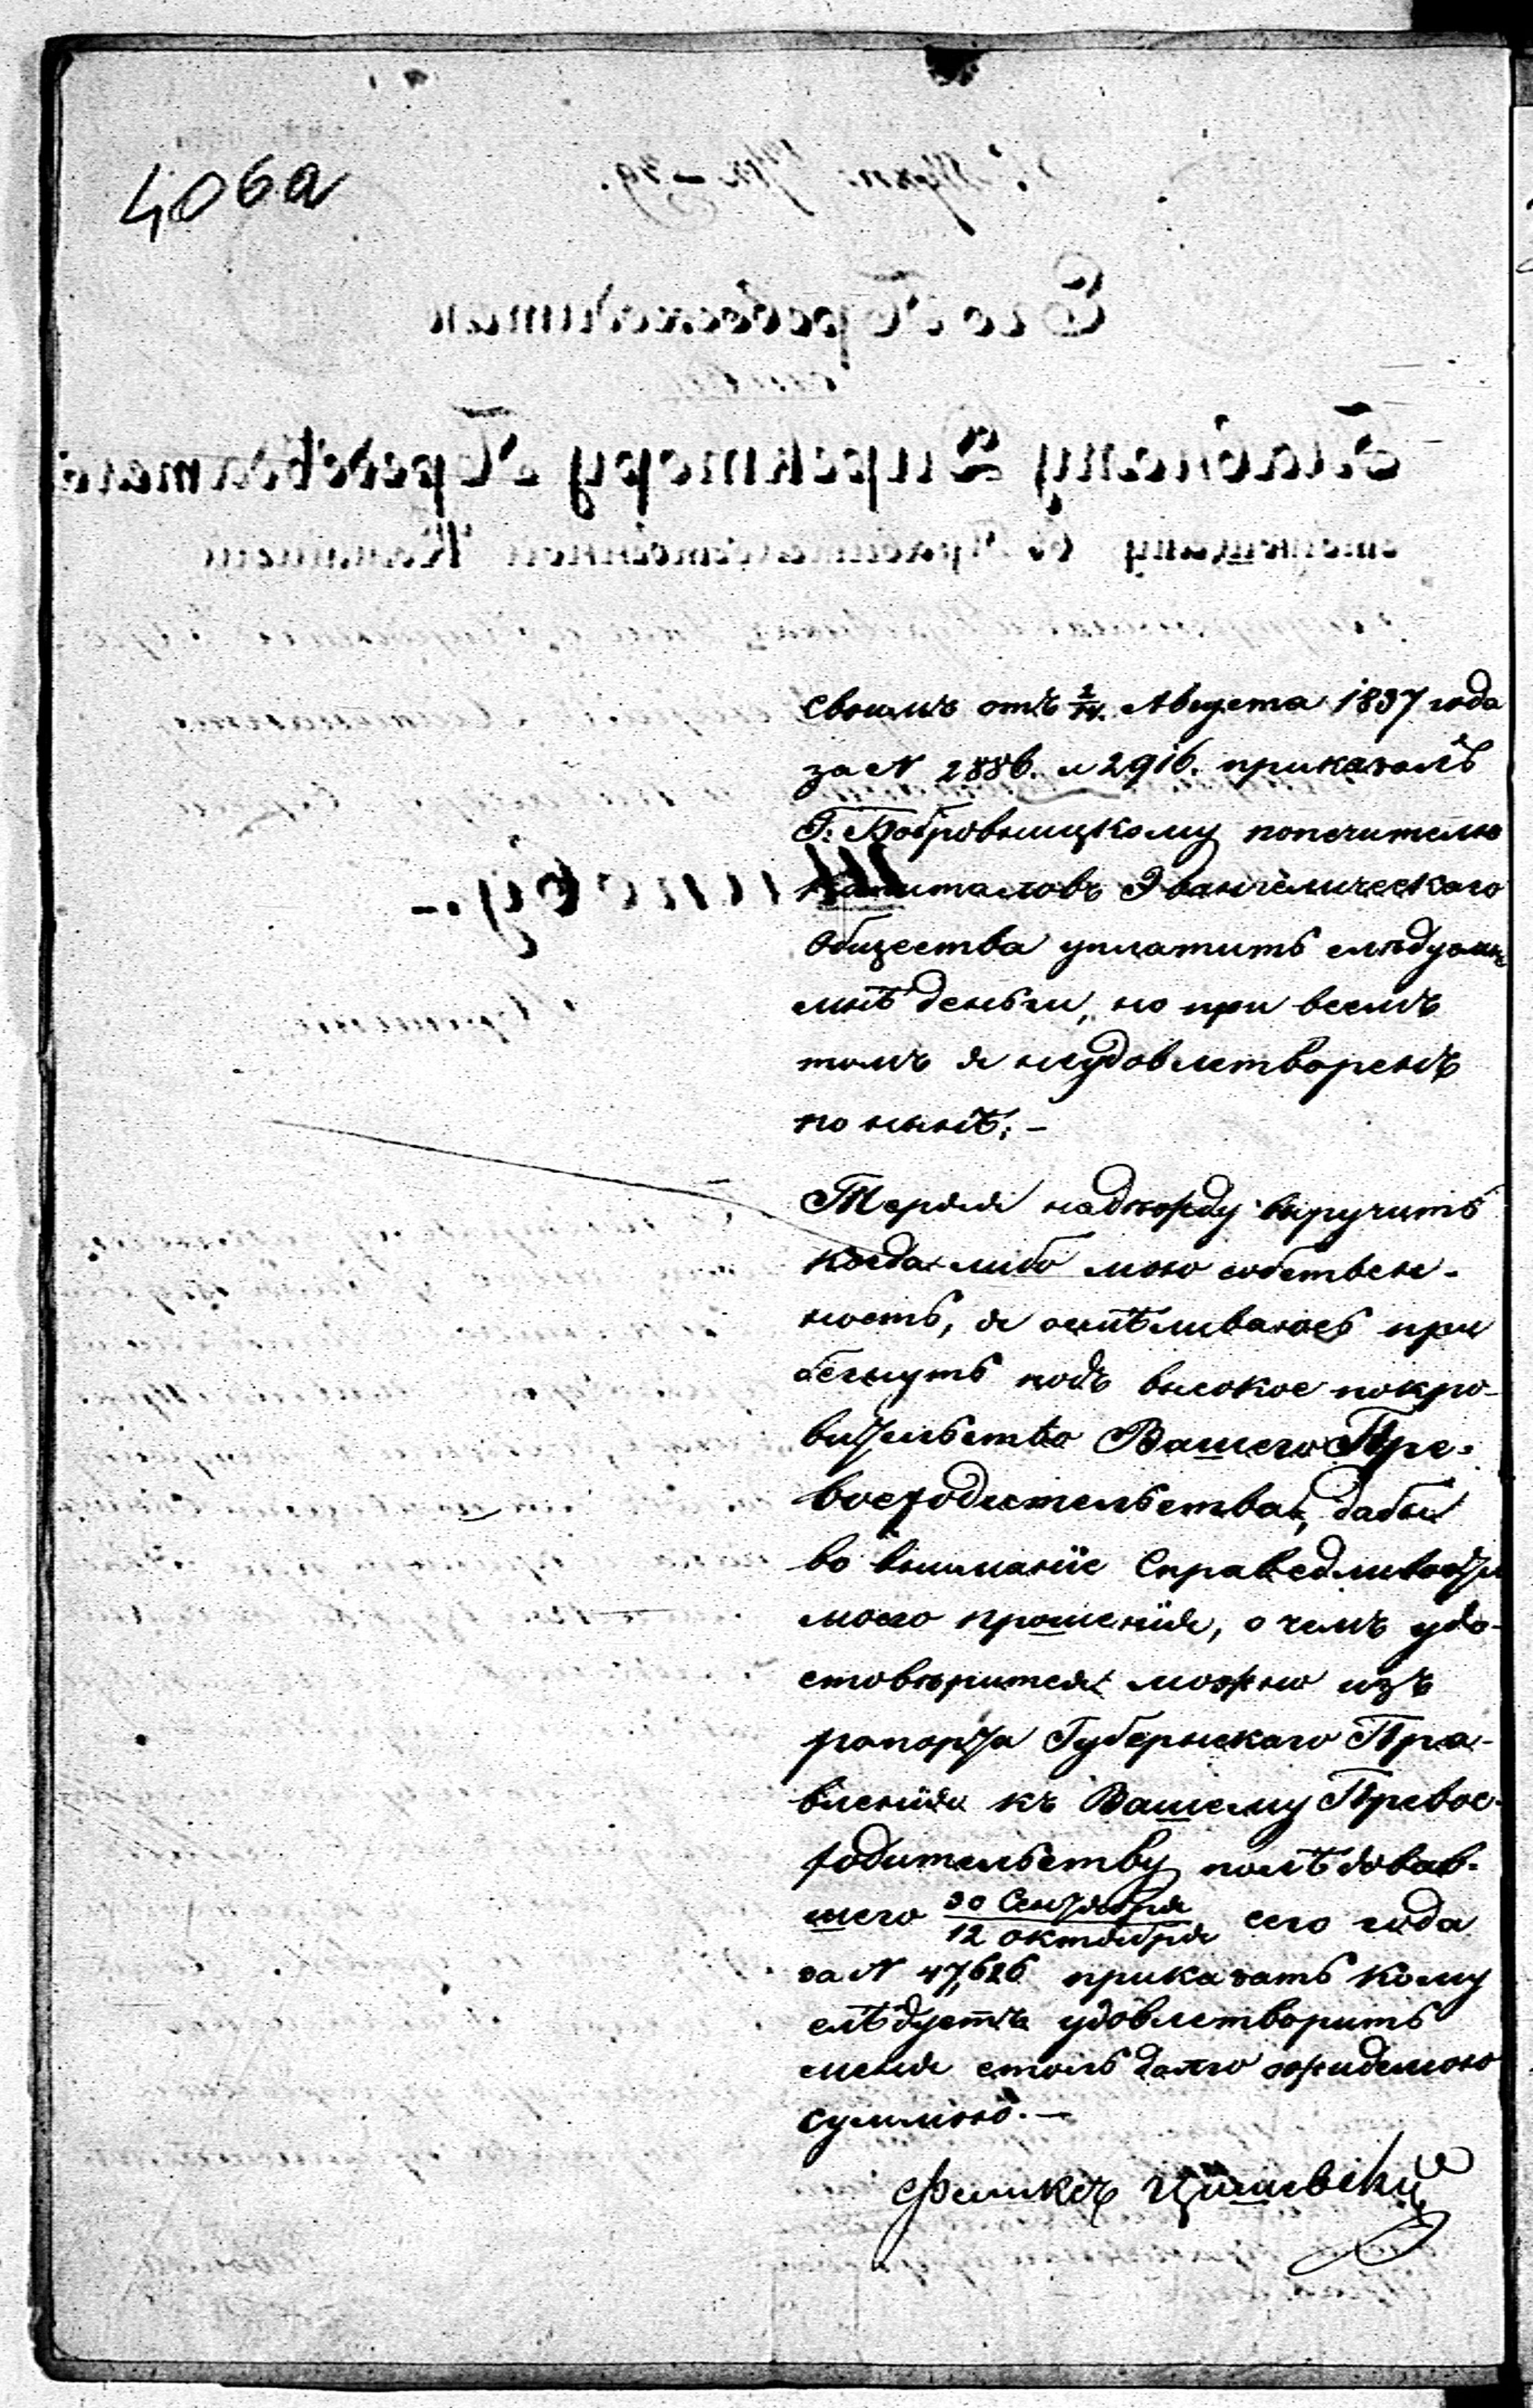 406a
своимъ отъ 2/14. Августа 1837 года
за N 2886. и 2916. приказалъ
Г. Бобровницкому попечителю
капиталовъ Эвангелическаго
Общества уплатить слѣдуемые
мнѣ деньги, но при всемъ
томъ я неудовлетворенъ
по нынѣ; -
Теряя надежду выручить
когда либо мою собствен-
ность, я осмѣливаюсь при
бегнуть подъ высокое покро-
вительство Вашего Пре-
восходительства, дабы
во вниманіе Справедливости
моего прошенія, о чемъ удо-
стовѣрится можно изъ
рапорта Губернскаго Пра-
вленія къ Вашему Превос-
ходительству послѣдовав-
шего 30 Сентября / 12 Октября сего года
за N 47,626 приказать кому
слѣдуетъ удовлетворить
меня столь долго ожидемою
суммою. —